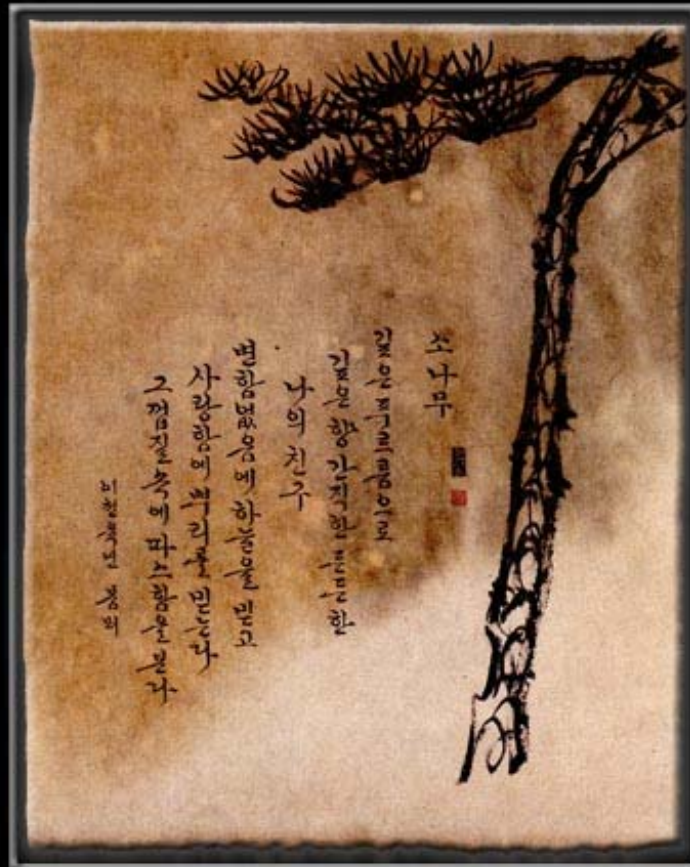 소나무
깊은 푸르름으로
깊은 향 간직한 든든한
나의 친구
변함없음에 하늘을 믿고
사랑함에 뿌리를 믿는다
그 껍질 속에 따스함을 본다